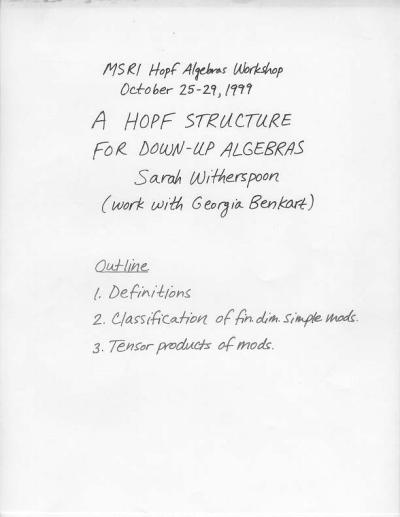 MSRI Hopf Algebras Workshop
October 25-29, 1999
A HOPF STRUCTURE
FOR DOWN-UP ALGEBRAS
Sarah Witherspoon
(work with Georgia Benkart)
Outline
1. Definitions
2. Classification of fin. dim. simple mods.
3. Tensor products of mods.